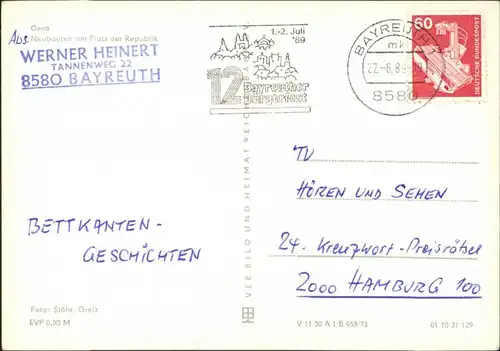 Gera
Neubauten am Platz der Republik
Abs.
WERNER HEINERT
TANNENWEG 22
8580 BAYREUTH
1.-2. Juli
'89
12. Bayreuther
Bürgerfest
BAYREUTH 1
mk
22.-6.89
8580
60
DEUTSCHE BUNDESPOST
TV
HÖREN UND SEHEN
24. Kreuzwort-Preisrätsel
2000 HAMBURG 100
BETTKANTEN-
GESCHICHTEN
VEB BILD UND HEIMAT REICHENBACH
Foto: Stöhr, Greiz
EVP 0,20 M
V 11 50 A 1/B 958/73
01 10 31 129